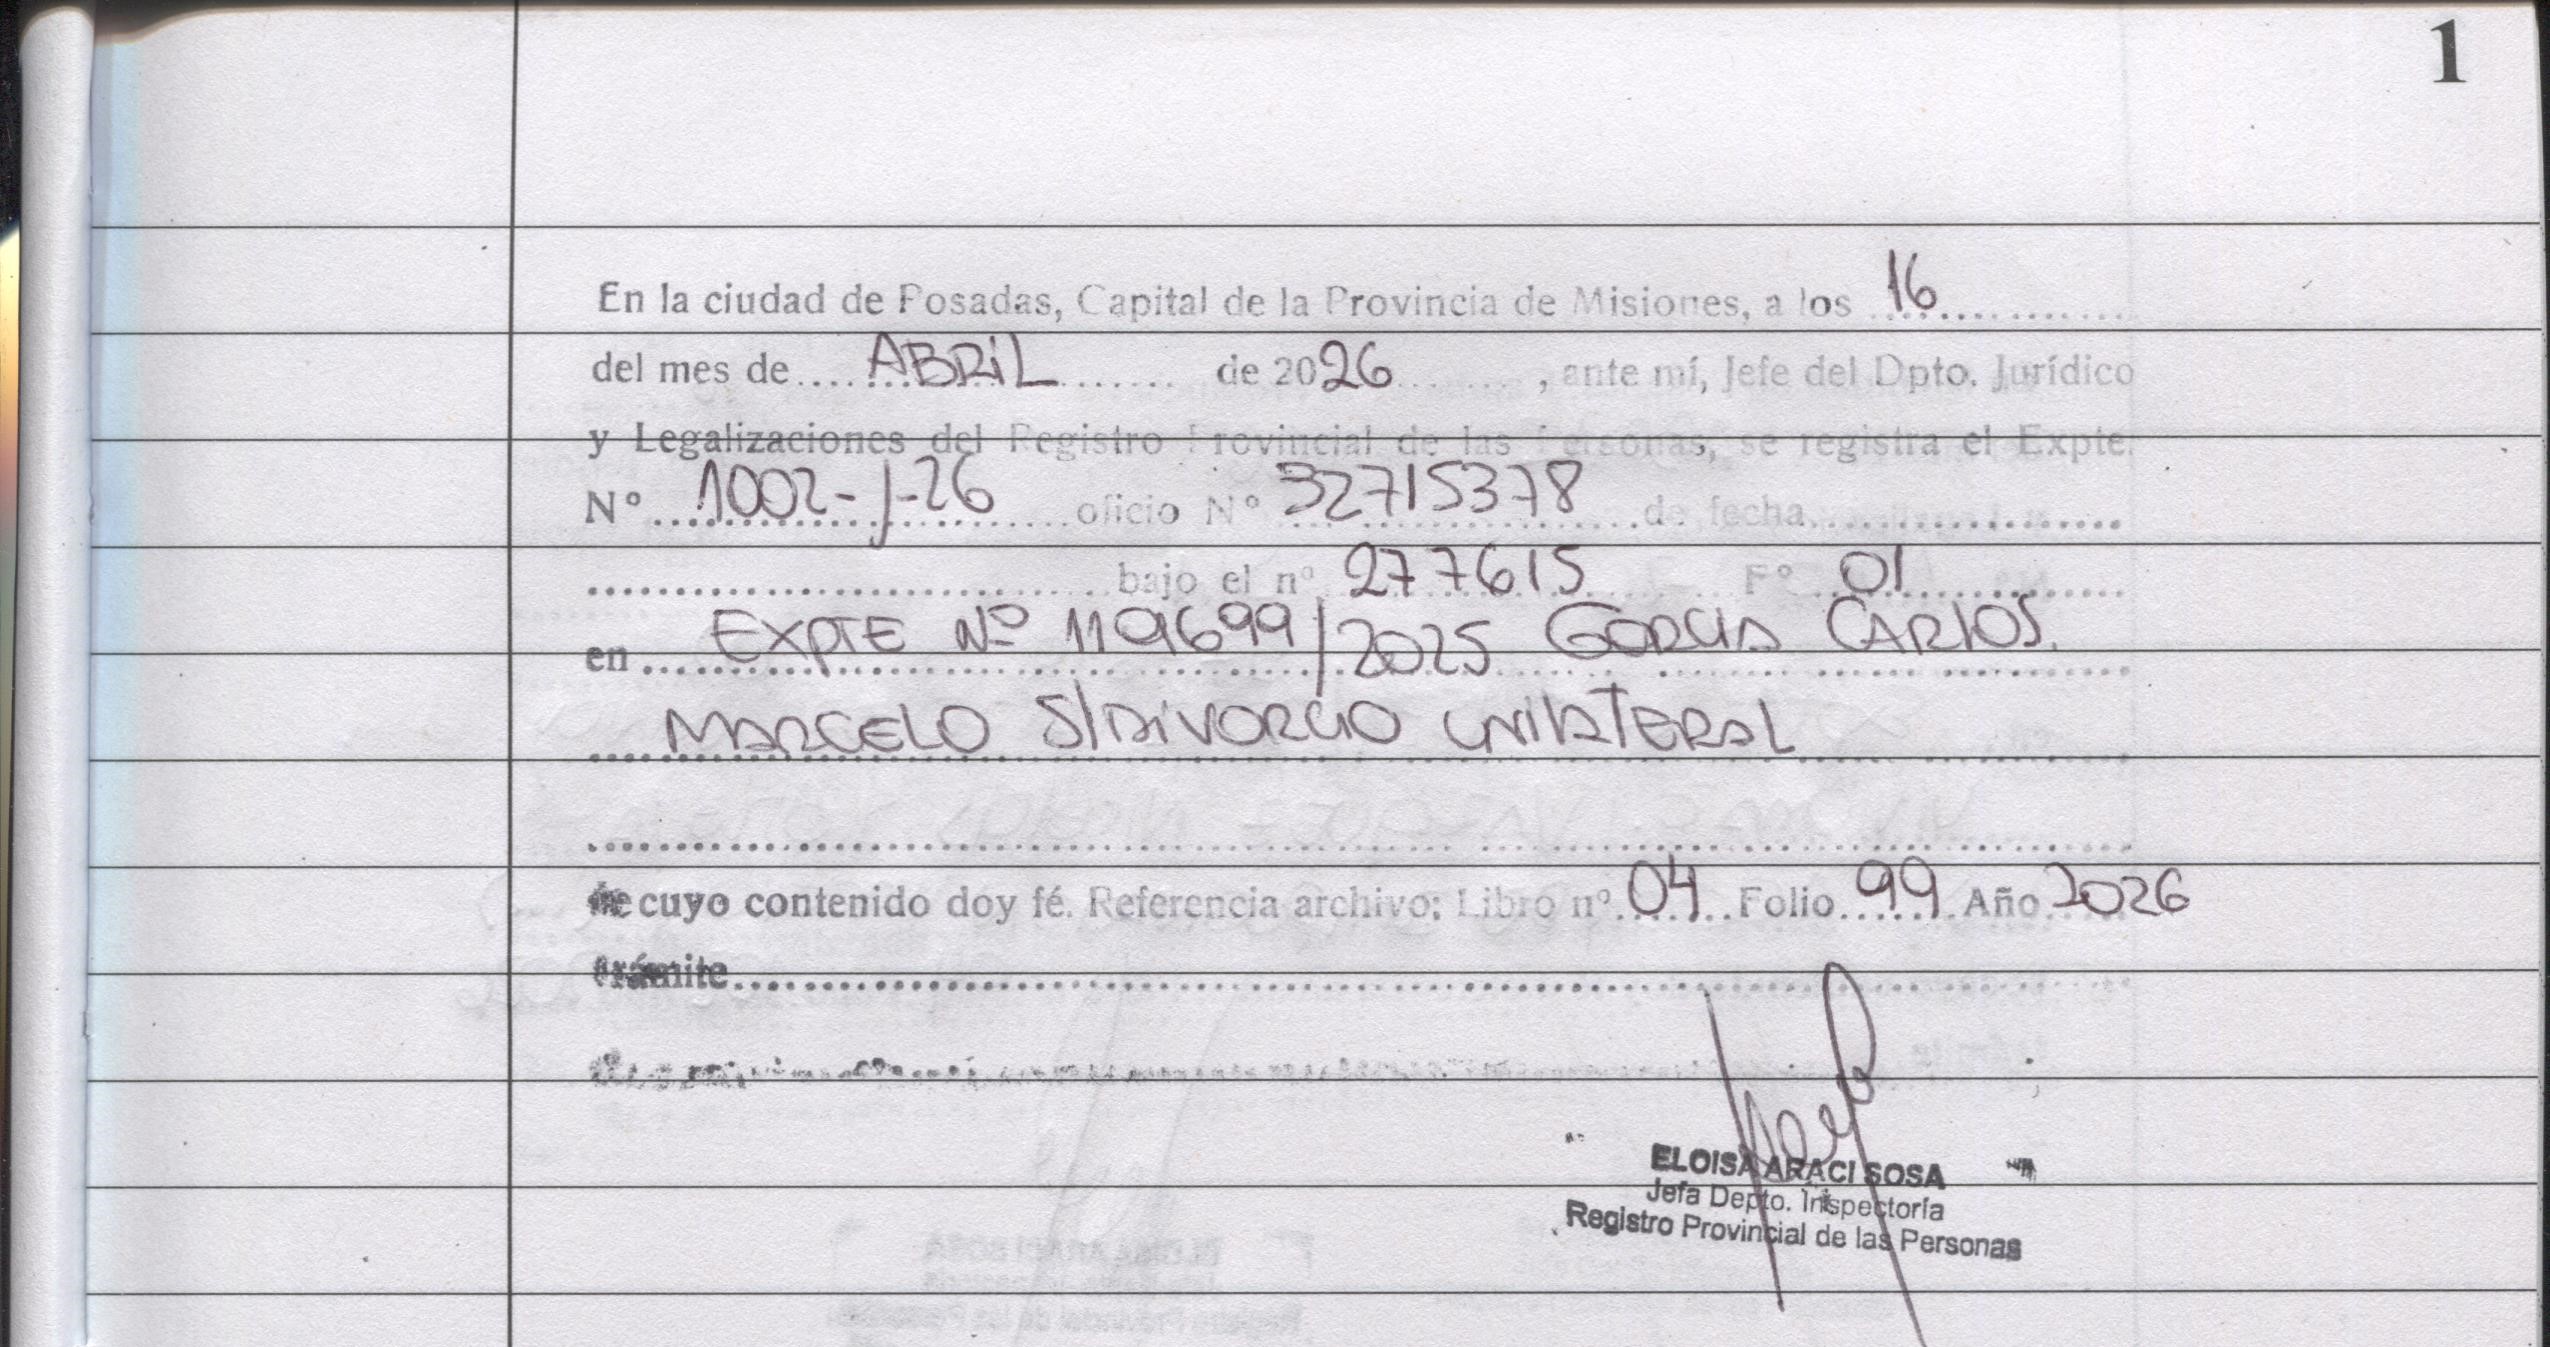 1
En la ciudad de Posadas, Capital de la Provincia de Misiones, a los 16
del mes de ABRIL de 2026, ante mí, Jefe del Dpto. Jurídico
y Legalizaciones del Registro Provincial de las Personas, se registra el Expte.
Nº 1002-J-26 oficio Nº 32715378 de fecha
bajo el nº 277615 Fº 01
en EXPTE Nº 119699/2025 GARCIA CARLOS
MARCELO S/DIVORCIO UNILATERAL
de cuyo contenido doy fé. Referencia archivo: Libro nº 04 Folio 99 Año 2026
trámite
ELOISA ARACI SOSA
Jefa Depto. Inspectoría
Registro Provincial de las Personas